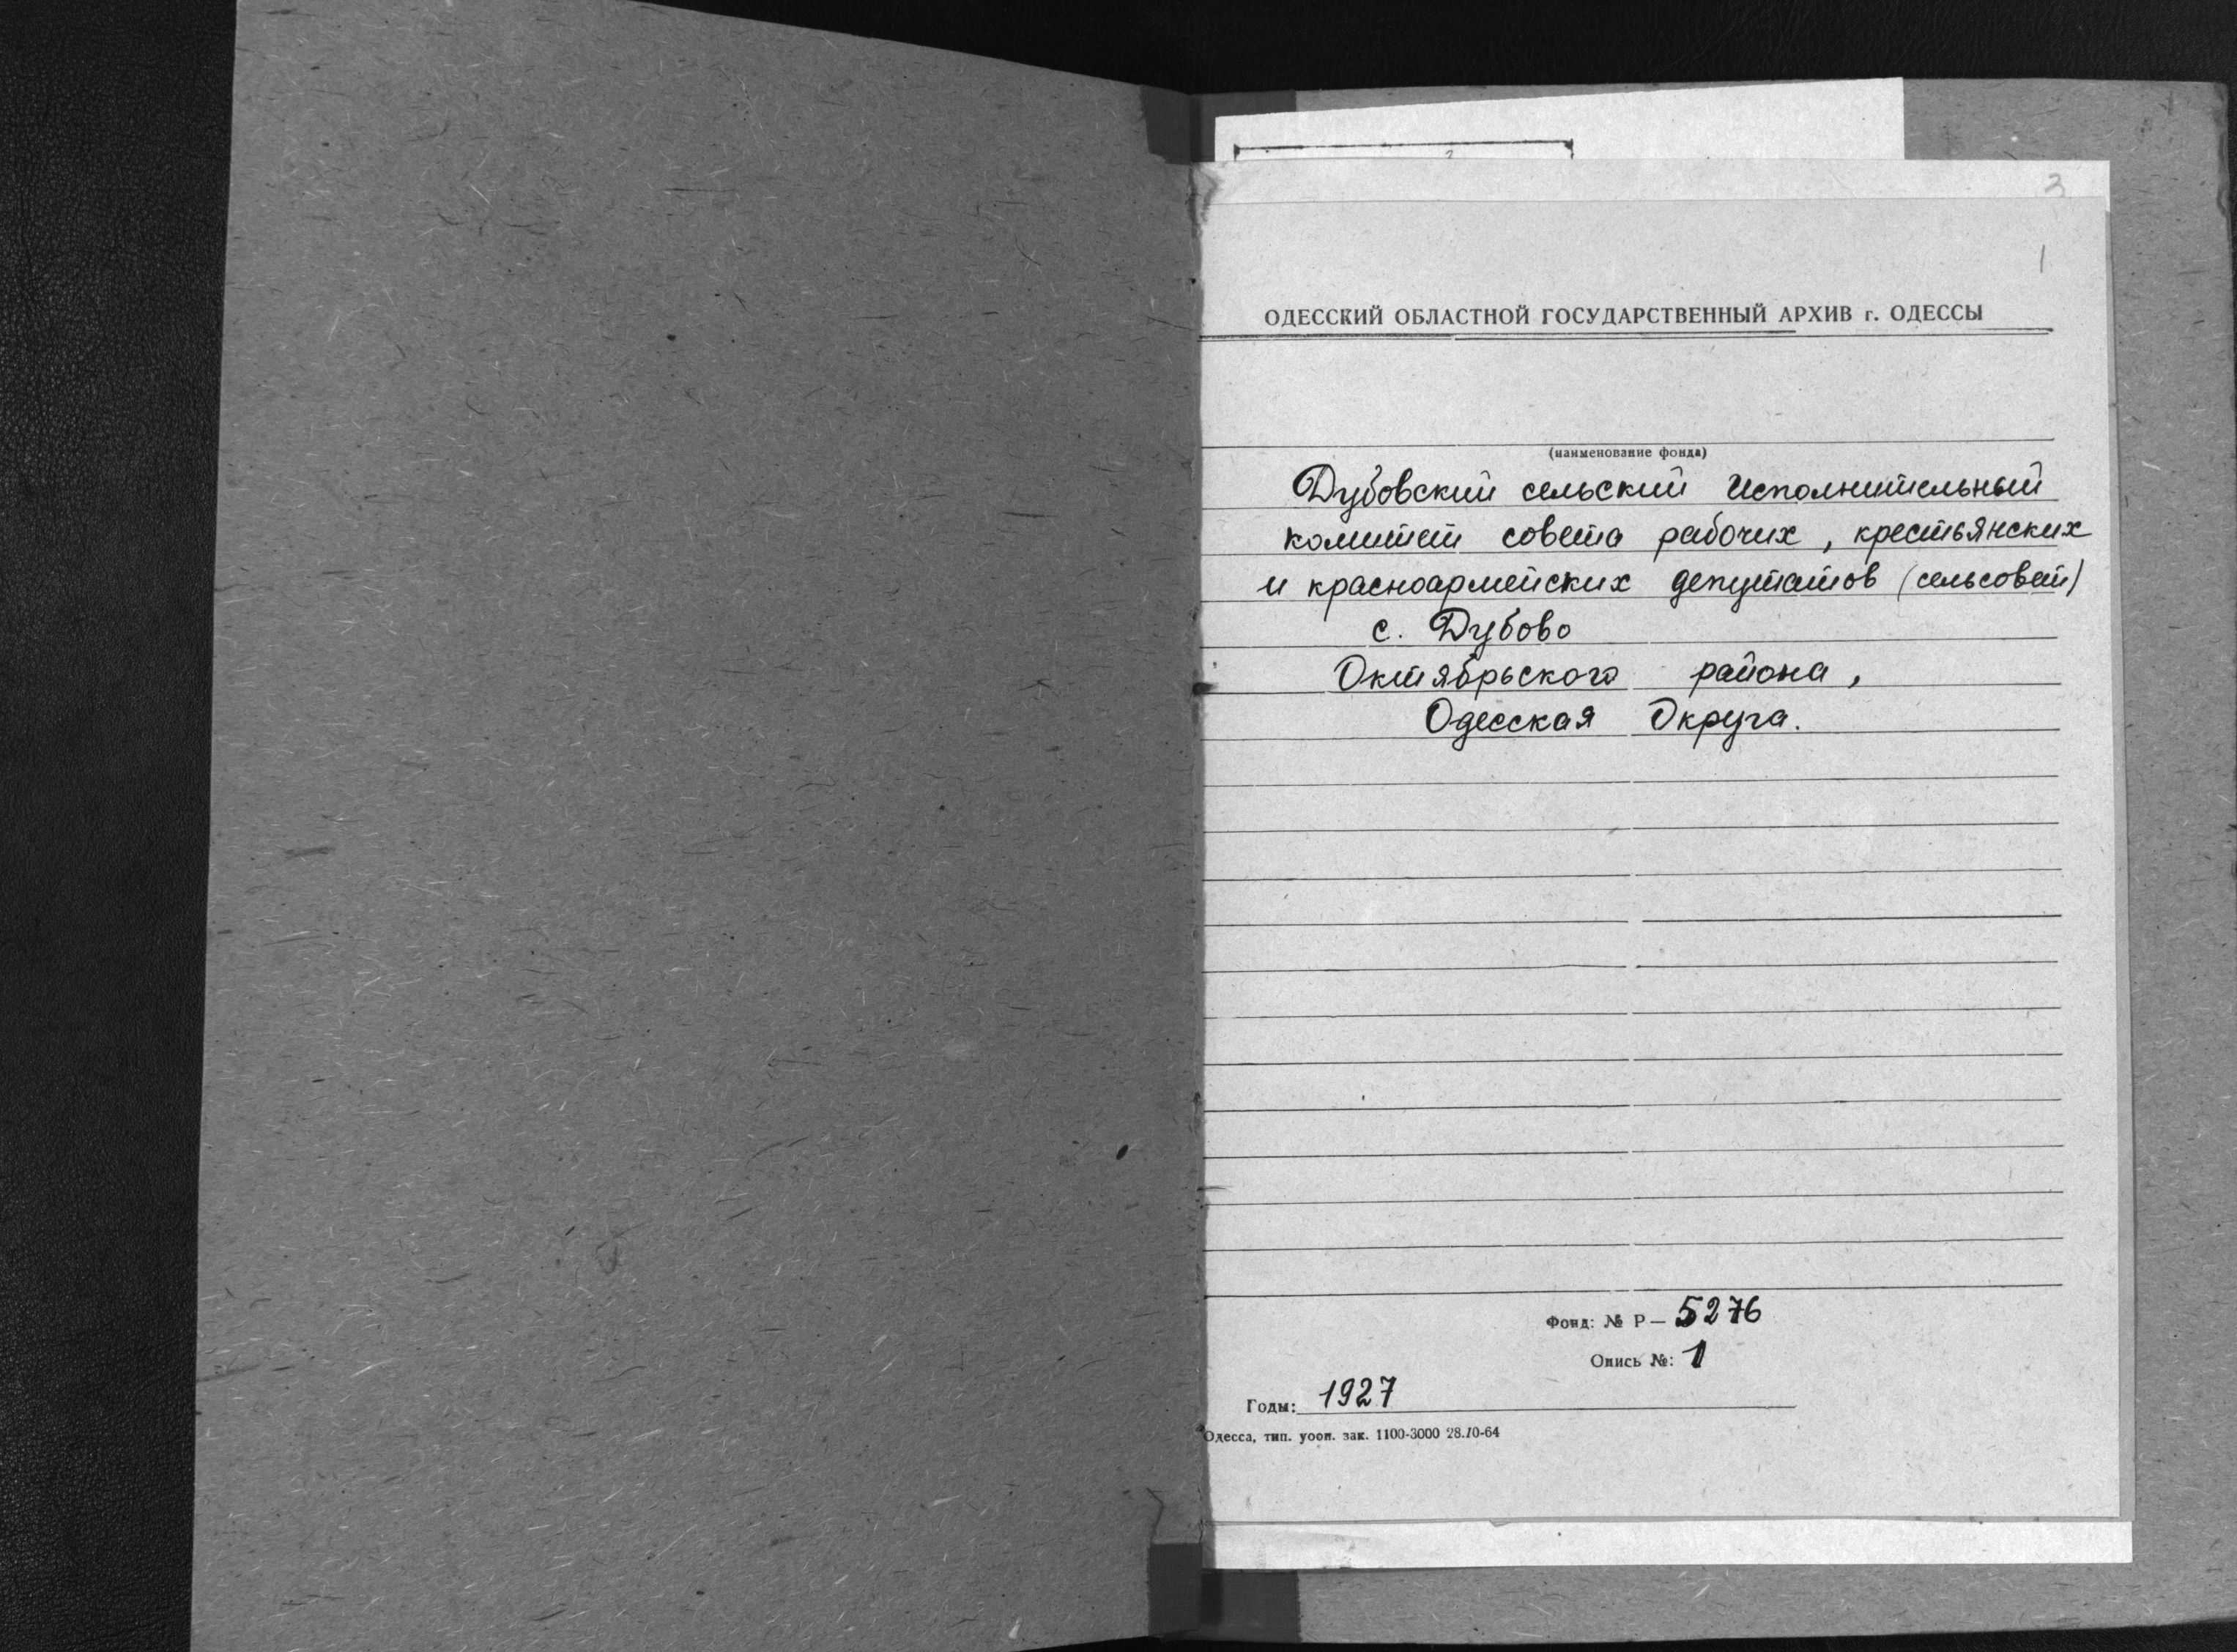 3
1
ОДЕССКИЙ ОБЛАСТНОЙ ГОСУДАРСТВЕННЫЙ АРХИВ г. ОДЕССЫ
(наименование фонда)
Дубовский сельский Исполнительный
комитет совета рабочих, крестьянских
и красноармейских депутатов (сельсовет)
с. Дубово
Октябрьского района,
Одесская Округа.
Фонд: № Р— 5276
Опись №: 1
Годы: 1927
Одесса, тип. уооп. зак. 1100-3000 28.10-64